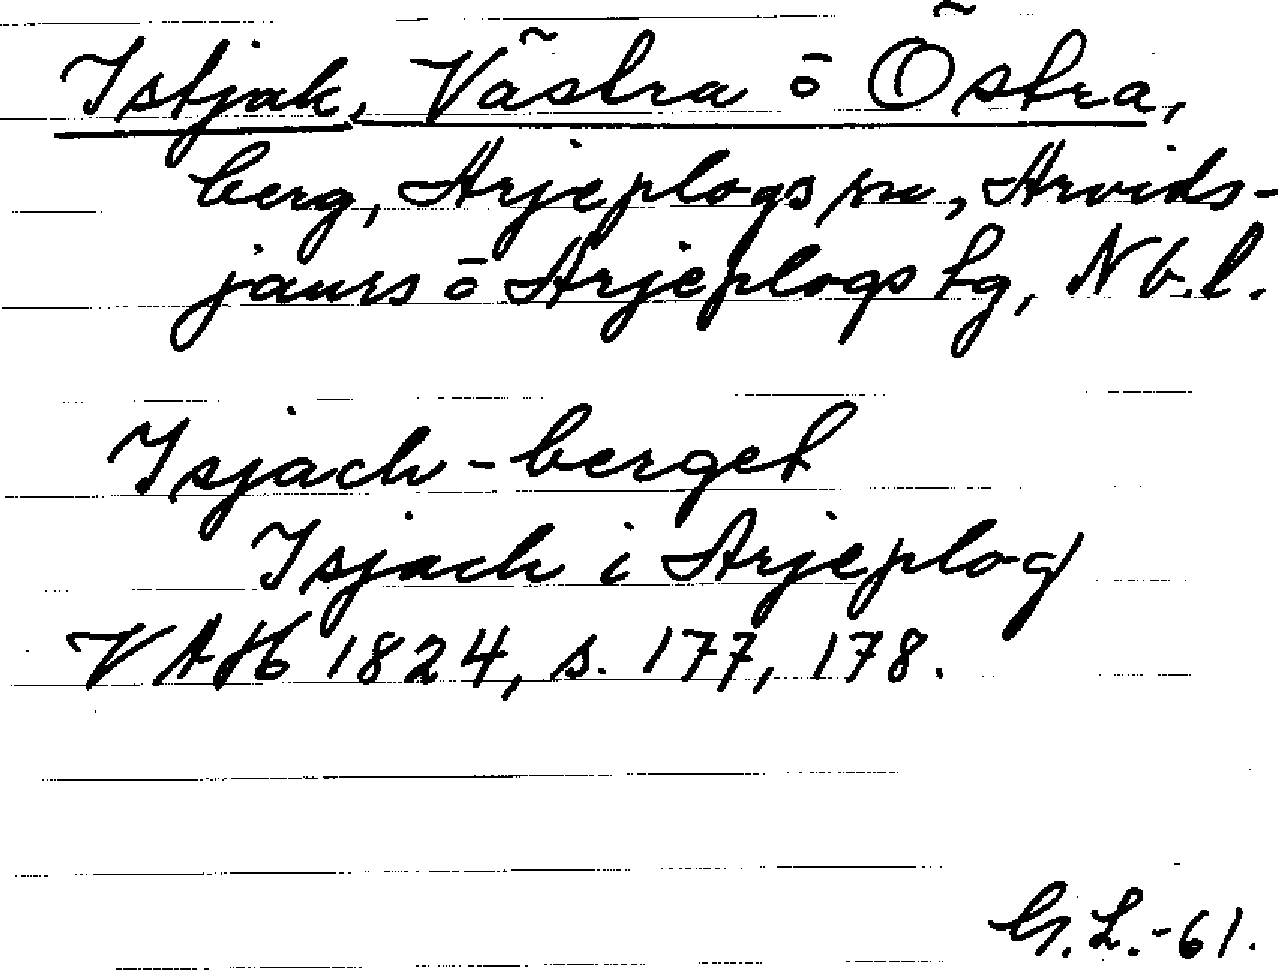 Istjak, Västra o Östra,
berg, Arjeplogs sn, Arvids-
jaurs o Arjeplogs tg, Nb.l.
Isjach-berget
Isjach i Arjeplog
VAH 1824, s. 177, 178.
G.L.-61.